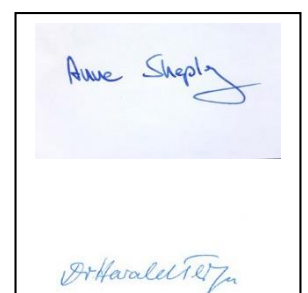 Anne Shepley
Dr Harald